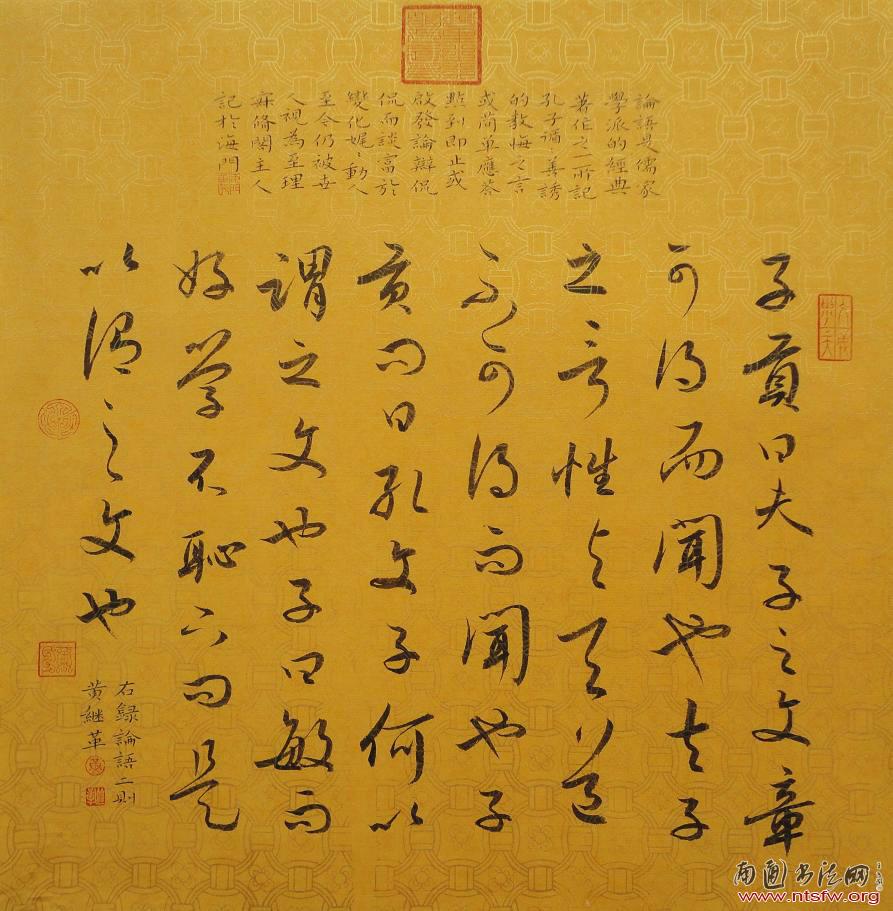 論語是儒家
學派的經典
著作之一所記
孔子循善誘
的教悔之言
或简單應答
點到即止或
啟發論辯侃
侃而談富於
變化娓〻動人
至今仍被世
人視為至理
脩閣主人
記於海門
子貢曰夫子之文章
可得而聞也夫子
之言性与天道
不可得而聞也子
貢问曰孔文子何以
謂之文也子曰敏而
好学不恥下问是
以谓之文也
右録論語二則
黄継革
南通书法网
www.ntsfw.org